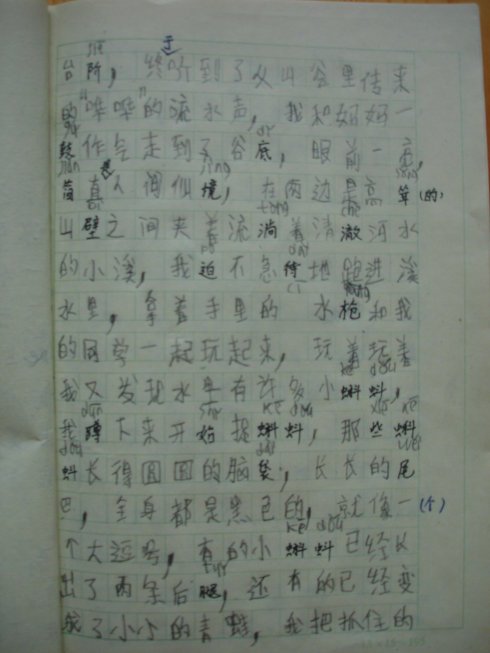 台阶，终于听到了从山谷里传来
的“哗哗”的流水声，我和好好一
鼓作气走到了谷底，眼前一亮，
简真人间仙境，在两边是高耸(的)
山壁之间夹着流淌着清澈河水
的小溪，我迫不急待地跑进溪
水里，拿着手里的水枪和我
的同学一起玩起来，玩着玩着
我又发现水里有许多小蝌蚪，
我蹲下来开始捉蝌蚪，那些蝌
蚪长得圆圆的脑袋，长长的尾
巴，全身都是黑色的，就像一(个)
个大逗号，有的小蝌蚪已经长
出了两条后腿，还有的已经变
成了小小的青蛙，我把抓住的